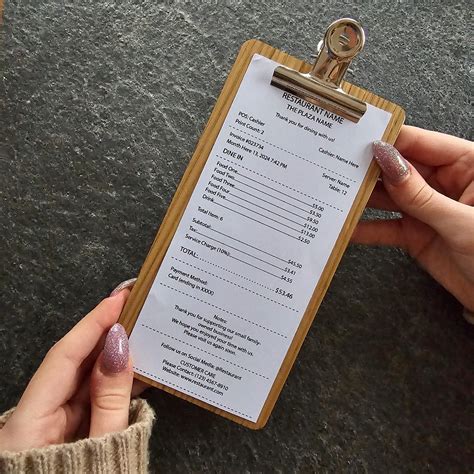 RESTAURANT NAME
THE PLAZA NAME
Thank you for dining with us!
POS: Cashier
Print Count: 2
Cashier: Name Here
Invoice #023734
Month Here 13, 2024 7:42 PM
Server: Name
Table: 12
DINE IN
Food One
Food Two
Food Three
Food Four
Food Five
Total Item: 6
Subtotal: $45.50
Tax: $3.41
Service Charge (10%): $4.55
TOTAL: $53.46
Payment Method:
Card (ending in XXXX)
Notes:
Thank you for supporting our small family-
owned business!
We hope you enjoyed your time with us.
Please visit us again soon.
Follow us on Social Media: @Restaurant
CUSTOMER CARE
Please Contact: (123) 4567-8910
Website: www.restaurant.com